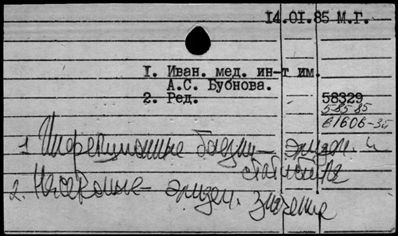 14.01.85 М.Г.
1. Иван. мед. ин-т им.
А.С. Бубнова.
2. Ред.
58329
58585
е1606-35
1 Инфекционные болезни - эпидем. и
статистика
2. Насекомые - эпидем. значение